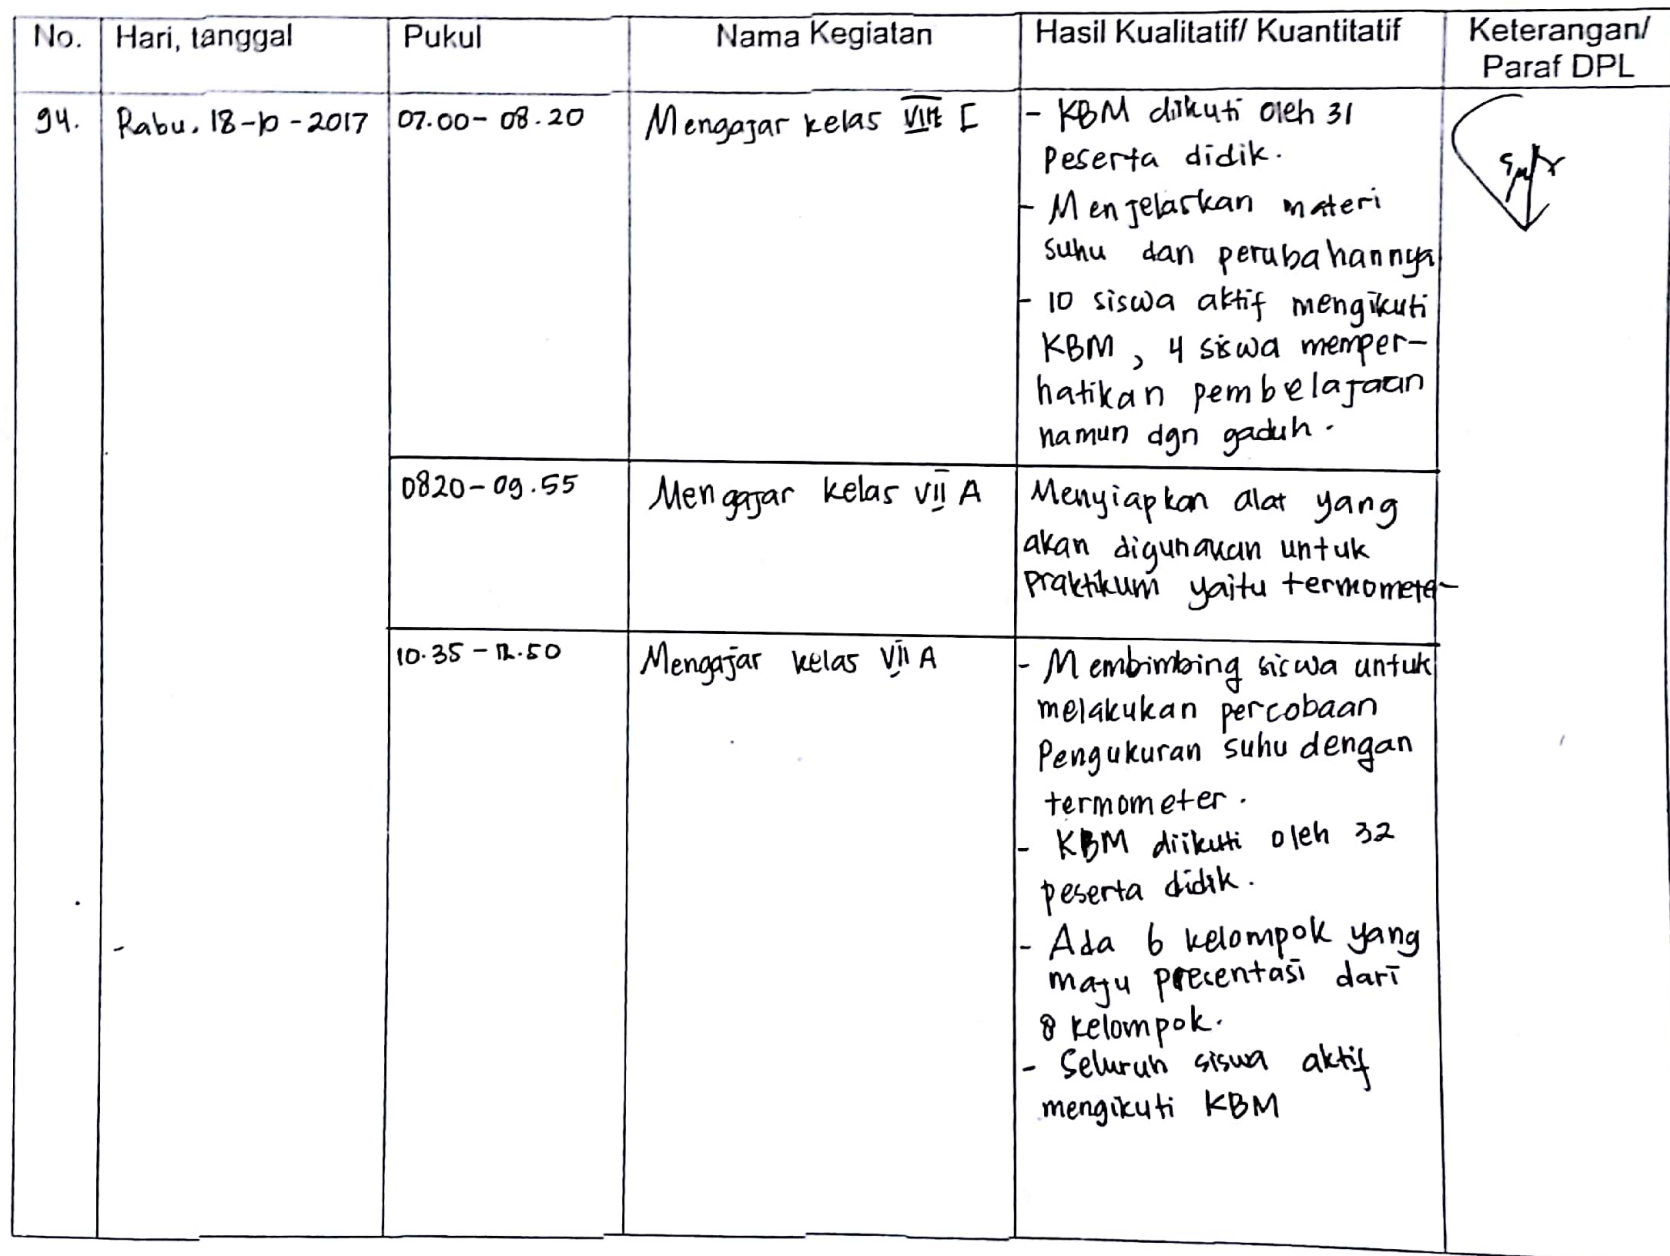 No.
Hari, tanggal
Pukul
Nama Kegiatan
Hasil Kualitatif/ Kuantitatif
Keterangan/
Paraf DPL
94.
Rabu, 18-10-2017
07.00 - 08.20
Mengajar kelas VIII I
- KBM diikuti oleh 31
peserta didik.
- Menjelaskan materi
suhu dan perubahannya
- 10 siswa aktif mengikuti
KBM, 4 siswa memper-
hatikan pembelajaan
namun dgn gaduh.
0820 - 09.55
Mengajar kelas VII A
Menyiapkan alat yang
akan digunakan untuk
praktikum yaitu termometer
10.35 - 12.50
Mengajar kelas VII A
- Membimbing siswa untuk
melakukan percobaan
Pengukuran suhu dengan
termometer.
- KBM diikuti oleh 32
peserta didik.
- Ada 6 kelompok yang
maju precentasi dari
8 kelompok.
- Seluruh siswa aktif
mengikuti KBM